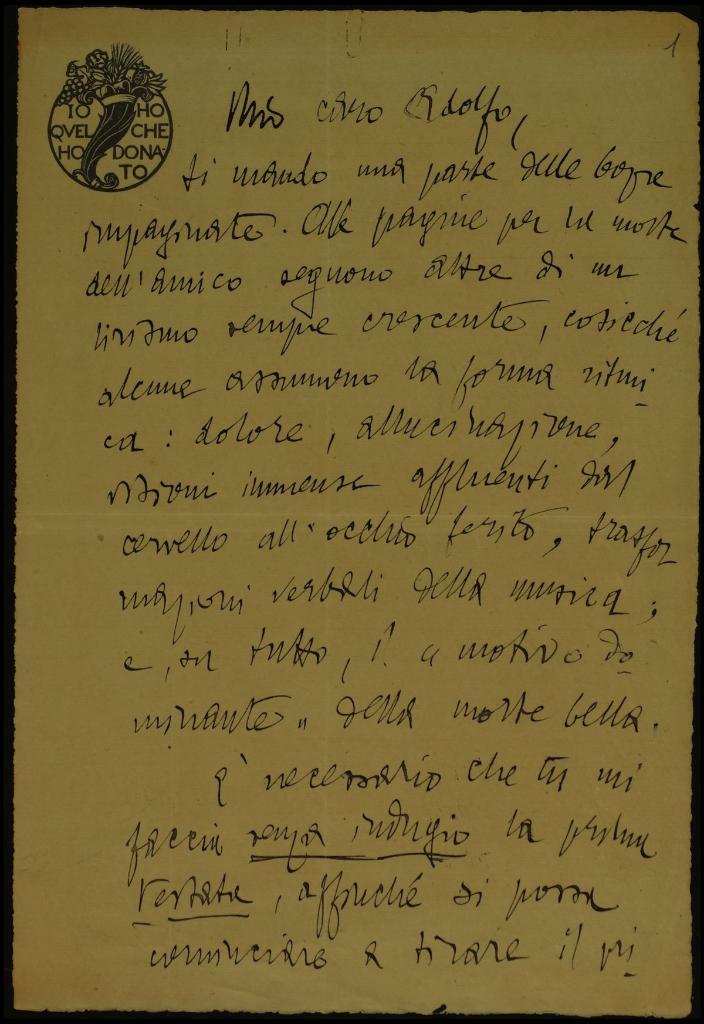 1
IO HO
QVEL CHE
HO DONA-
TO
Mio caro Adolfo,
ti mando una parte delle bozze
impaginate. Alle pagine per la morte
dell'amico seguono altre di un
lirismo sempre crescente, cosicché
alcune assumono la forma ritmi-
ca: dolore, allucinazione,
visioni immense affluenti dal
cervello all'occhio ferito, trasfor-
mazioni verbali della musica;
e, su tutto, il "motivo do-
minante" della morte bella.
È necessario che tu mi
faccia senza indugio la prima
testata, affinché si possa
cominciare a tirare il pri-